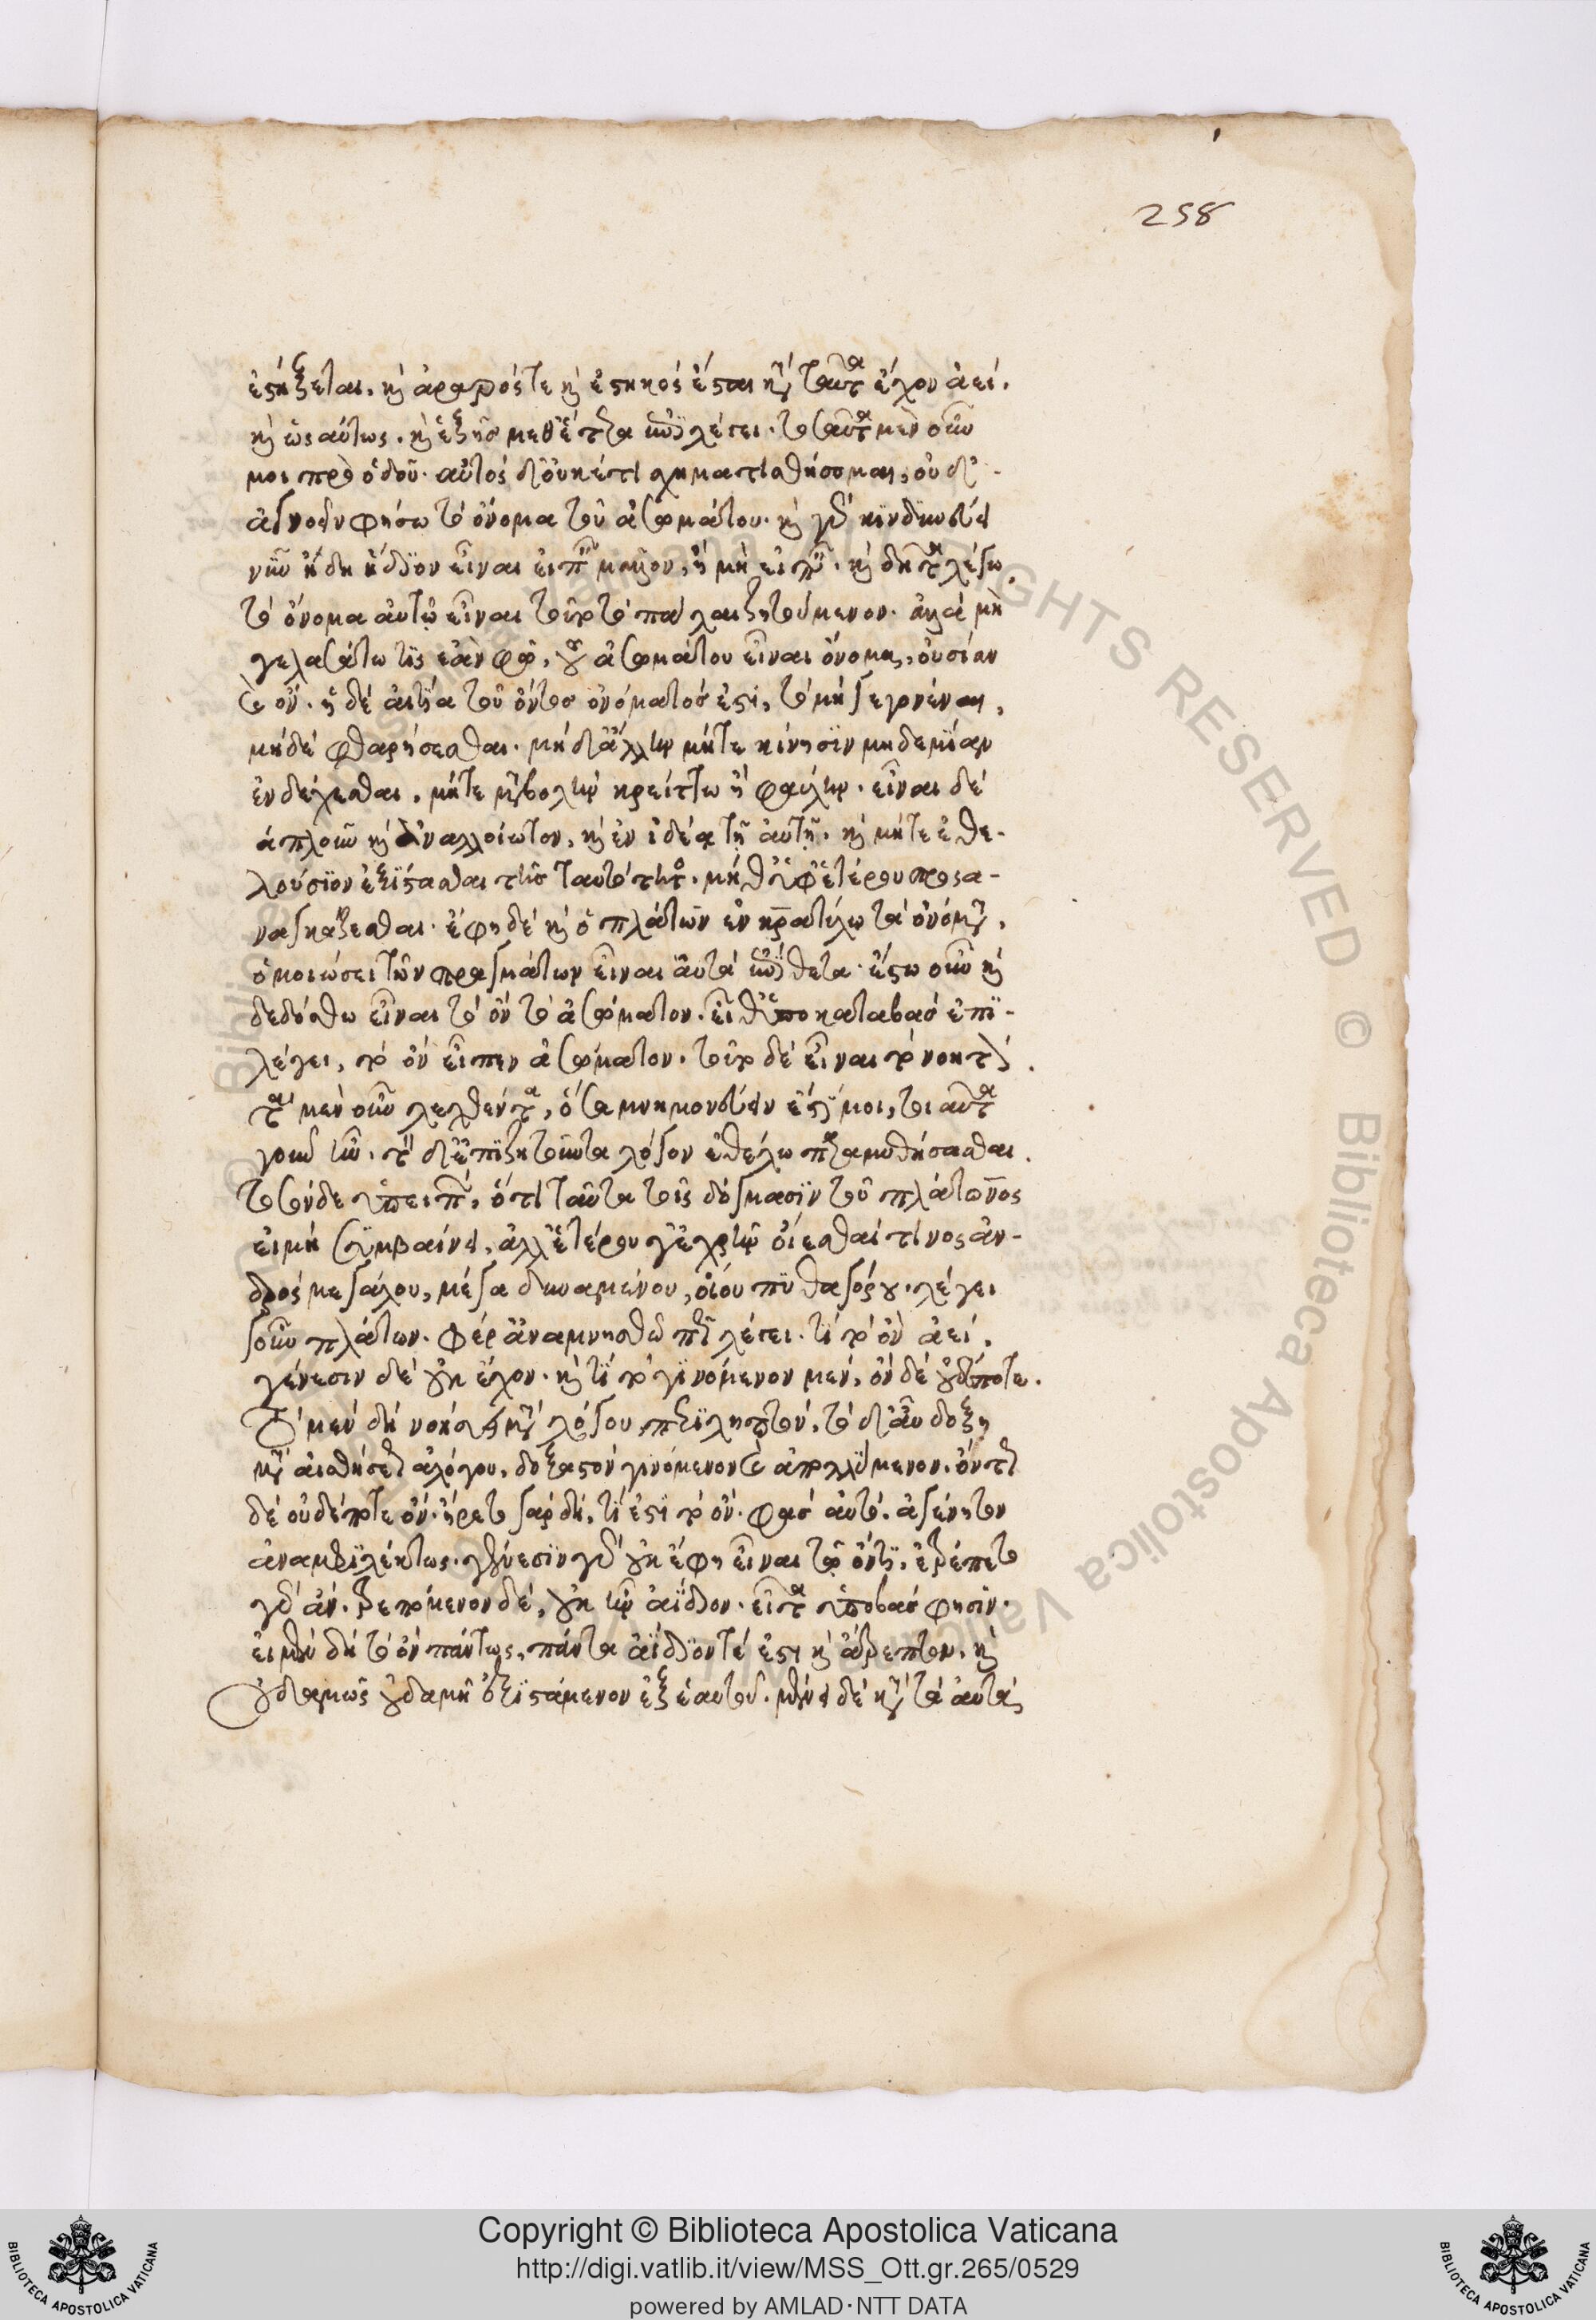 258
ἑστήξεται. καὶ ἀραρός τε καὶ ἑστηκὸς ἔσται κατὰ ταὐτὰ ἔχον ἀεί.
καὶ ὡσαύτως. καὶ ἑξῆς μεθ' ἕτερα λέγει. ταῦτα μὲν οὖν
μοι πρὸ ὁδοῦ. αὐτὸς δ' οὐκέτι σχηματισθήσομαι, οὐδ'
ἀγνοεῖν φήσω τὸ ὄνομα τοῦ ἀσωμάτου. καὶ γὰρ κινδυνεύει
νῦν ἤδη ἥδιον εἶναι εἰπεῖν μᾶλλον, ἢ μὴ εἰπεῖν. καὶ δῆτα λέγω
τὸ ὄνομα αὐτῷ εἶναι τοῦτο τὸ πάλαι ζητούμενον. ἀλλὰ μὴ
γελασάτω τις ἐὰν φῶ, τοῦ ἀσωμάτου εἶναι ὄνομα, οὐσίαν
καὶ ὄν. ἡ δὲ αἰτία τοῦ ὄντος ὀνόματός ἐστι, τὸ μὴ γεγονέναι,
μηδὲ φθαρήσεσθαι. μηδ' ἄλλην μήτε κίνησιν μηδεμίαν
ἐνδέχεσθαι, μήτε μεταβολὴν κρείττω ἢ φαύλην. εἶναι δὲ
ἁπλοῦν καὶ ἀναλλοίωτον, καὶ ἐν ἰδέᾳ τῇ αὐτῇ. καὶ μήτε ἐθε-
λούσιον ἐξίστασθαι τῆς ταυτότητος. μήθ' ὑφ' ἑτέρου προσα-
ναγκάζεσθαι. ἔφη δὲ καὶ ὁ πλάτων ἐν κρατύλῳ τὰ ὀνόματα,
ὁμοιώσει τῶν πραγμάτων εἶναι αὐτὰ ἐπίθετα. ἔστω οὖν καὶ
δεδόσθω εἶναι τὸ ὂν τὸ ἀσώματον. εἶθ' ὑποκαταβὰς ἐπι-
λέγει, τὸ ὂν εἶπον ἀσώματον. τοῦτο δὲ εἶναι τὸ νοητόν.
τὰ μὲν οὖν λεχθέντα, ὅσα μνημονεύειν ἐστί μοι, τοιαῦτα
γοῦν ἦν. τὸν δ' ἐπιζητοῦντα λόγον ἐθέλω παραμυθήσασθαι
τοσόνδε ὑπειπών, ὅτι ταῦτα τοῖς δόγμασιν τοῦ πλάτωνος
εἰ μὴ συμβαίνει, ἀλλ' ἑτέρου γε ἐχρῆν οἴεσθαί τινος ἀν-
δρὸς μεγάλου, μέγα δυναμένου, οἵου πυθαγόρου. λέγει
γοῦν πλάτων. φέρ' ἀναμνησθῶ πῶς λέγει. τί τὸ ὂν ἀεί,
γένεσιν δὲ οὐκ ἔχον. καὶ τί τὸ γινόμενον μέν, ὂν δὲ οὐδέποτε.
Τὸ μὲν δὴ νοήσει μετὰ λόγου περιληπτόν, τὸ δ' αὖ δόξῃ
μετ' αἰσθήσεως ἀλόγου, δοξαστὸν γινόμενον καὶ ἀπολλύμενον. ὄντως
δὲ οὐδέποτε ὄν. ἤρετο γὰρ δή, τί ἐστι τὸ ὄν. φὰς αὐτό. ἀγένητον
ἀναμφιλέκτως. γένεσιν γὰρ οὐκ ἔφη εἶναι τῷ ὄντι. ἐτρέπετο
γὰρ ἄν. τρεπόμενον δέ, οὐκ ἦν ἀίδιον. εἶτα ὑποβὰς φησίν.
εἰ μὲν δὴ τὸ ὂν πάντως, πάντα ἀΐδιόν τέ ἐστι καὶ ἄτρεπτον, καὶ
οὐδαμῶς οὐδαμῇ ἐξιστάμενον ἐξ ἑαυτοῦ. μένει δὲ κατὰ τὰ αὐτά,
Copyright © Biblioteca Apostolica Vaticana
http://digi.vatlib.it/view/MSS_Ott.gr.265/0529
powered by AMLAD·NTT DATA